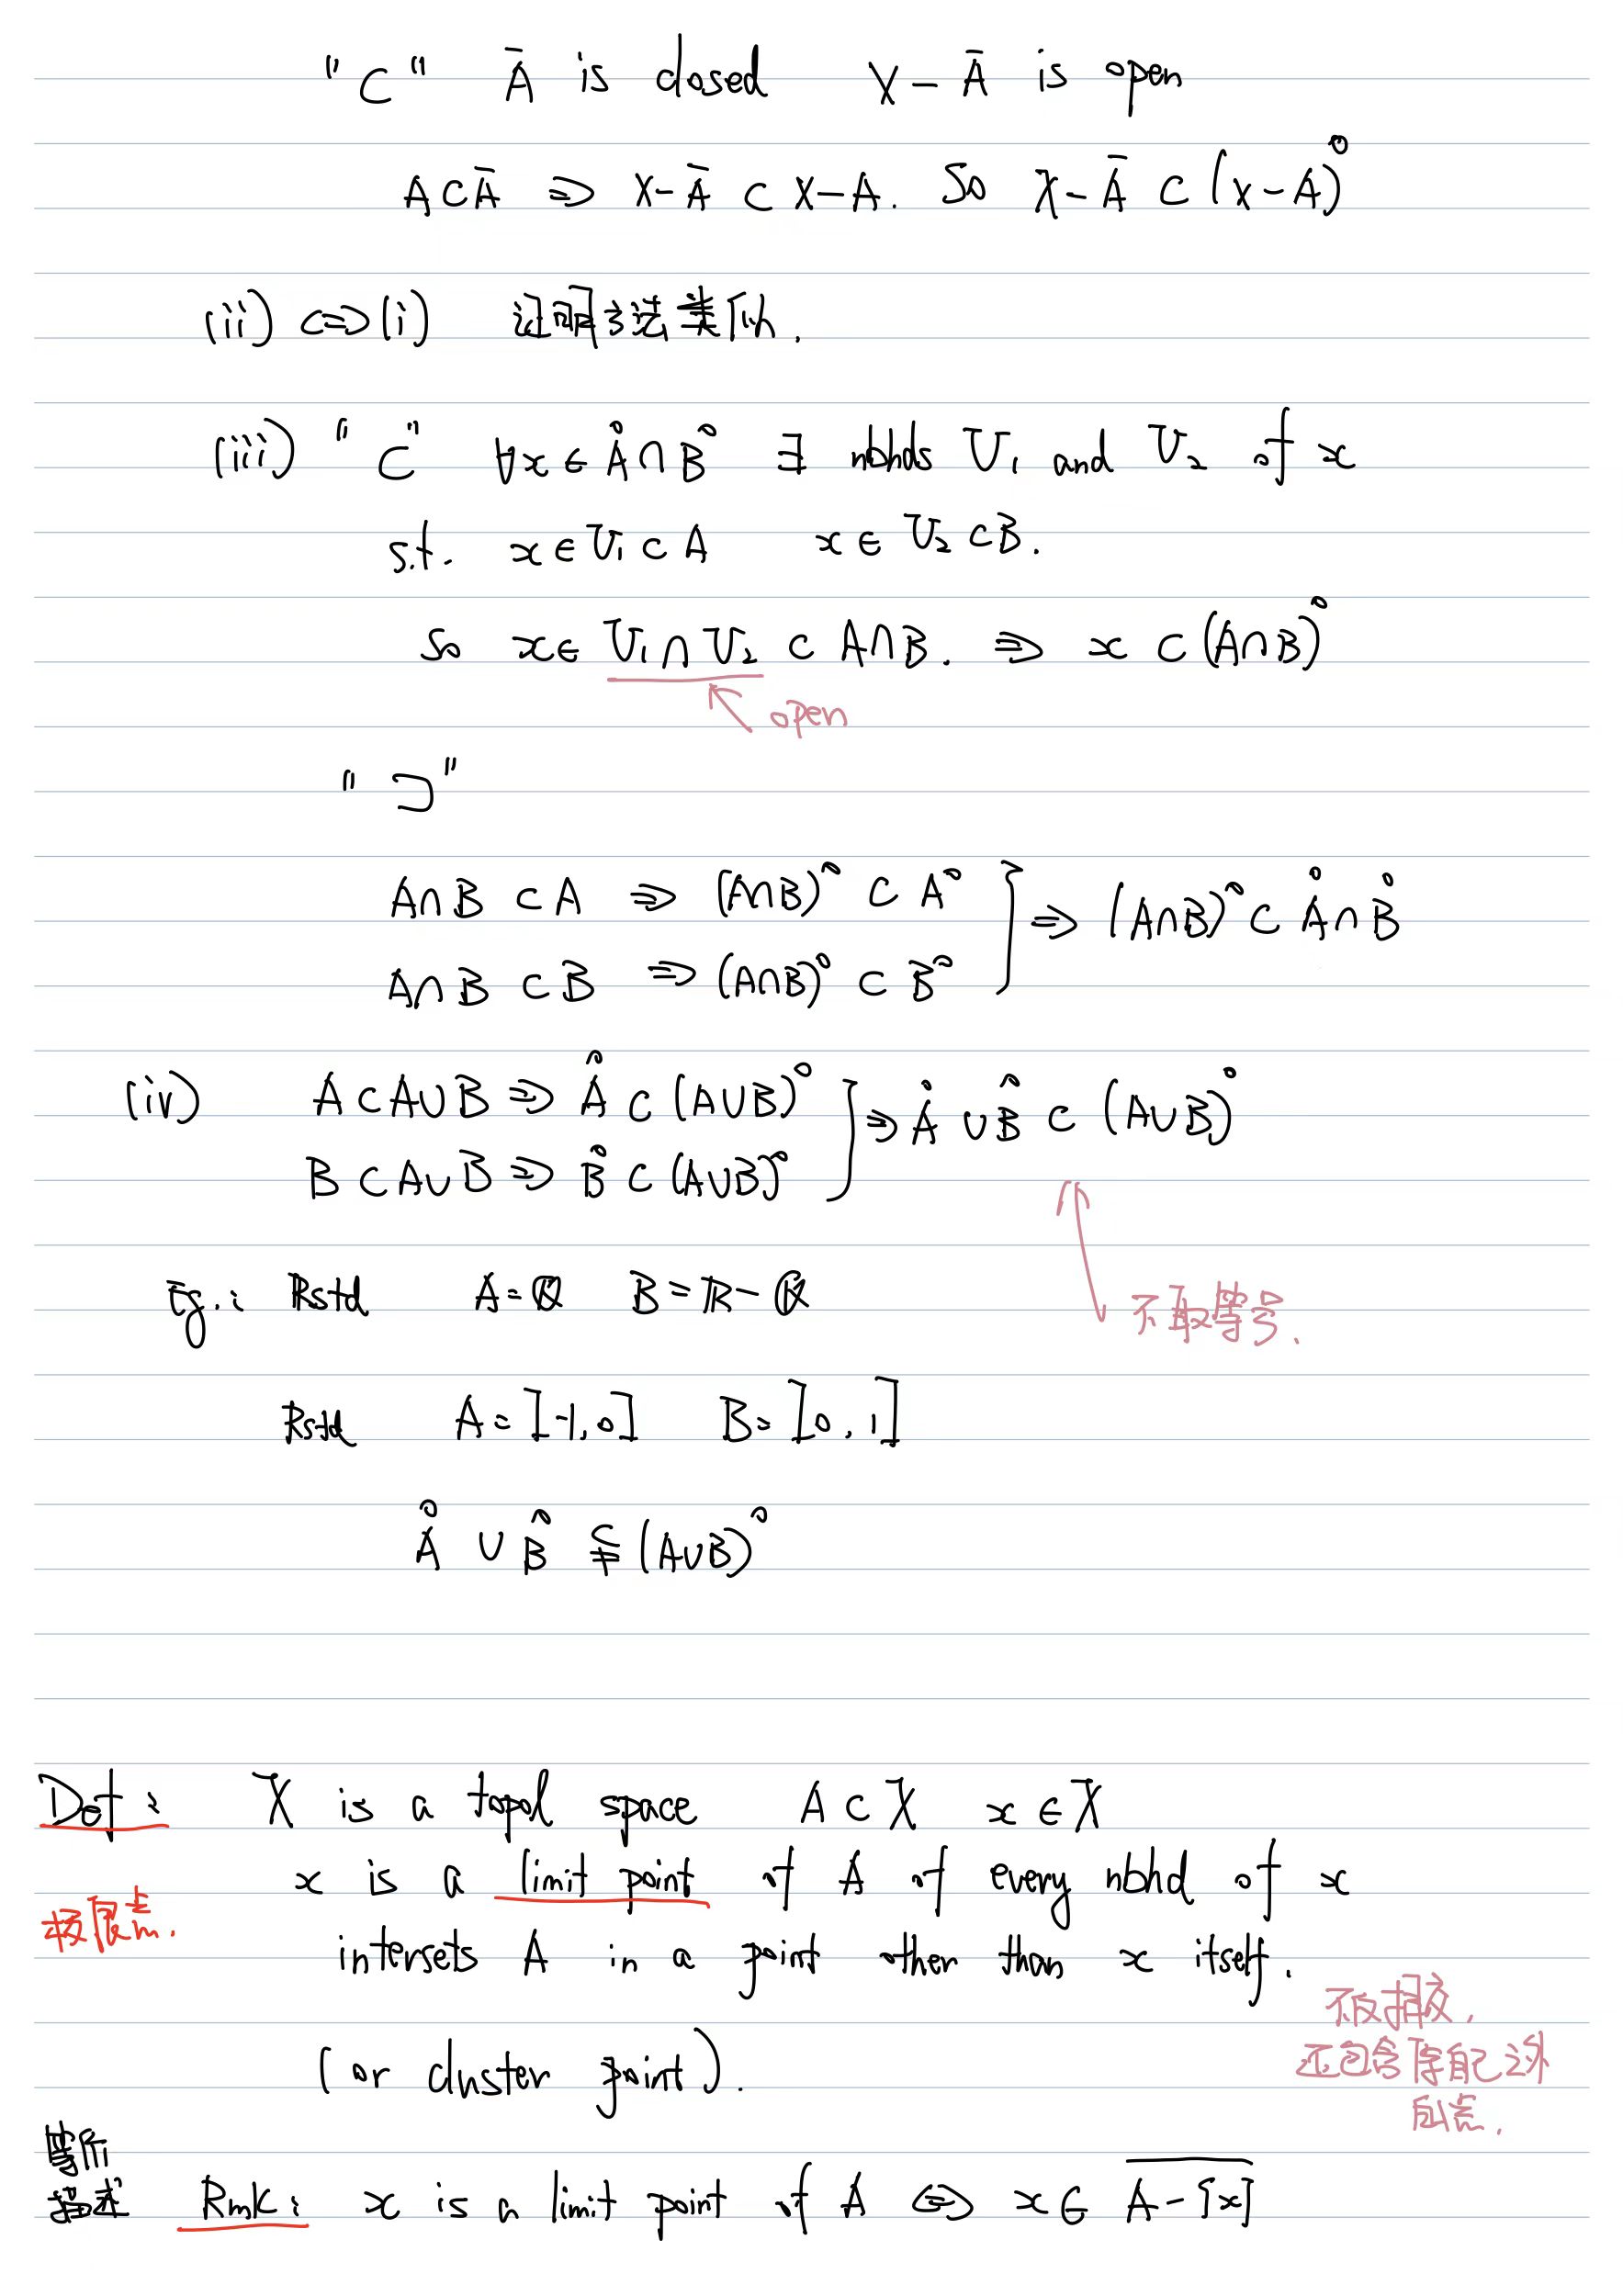 "⊂" Ā is closed X − Ā is open
A⊂Ā ⇒ X−Ā ⊂ X−A. So X−Ā ⊂ (X−A)°
(ii) ⇔ (i) 证明方法类似.
(iii) "⊂" ∀x∈Å∩B° ∃ nbhds U₁ and U₂ of x
s.t. x∈U₁⊂A x∈U₂⊂B.
So x∈ U₁∩U₂ ⊂ A∩B. ⇒ x ⊂ (A∩B)°
open
"⊃"
A∩B ⊂A ⇒ (A∩B)° ⊂ A° ] ⇒ (A∩B)° ⊂ Å∩B̊
A∩B ⊂B ⇒ (A∩B)° ⊂ B°
(iv) A⊂A∪B ⇒ Å ⊂ (A∪B)° ] ⇒ Å ∪B̊ ⊂ (A∪B)°
B⊂A∪B ⇒ B̊ ⊂ (A∪B)°
Eg.: Rstd A=ℚ B=ℝ−ℚ
不取等号.
Rstd A=[-1,0] B=[0,1]
Å ∪ B̊ ⊊ (A∪B)°
Def: X is a topol space A⊂X x∈X
x is a limit point of A of every nbhd of x
极限点.
intersets A in a point other than x itself.
不仅相交,
(or cluster point).
还包含除自己之外
的点.
等价
描述 Rmk: x is a limit point of A ⇔ x∈ \overline{A−{x}}